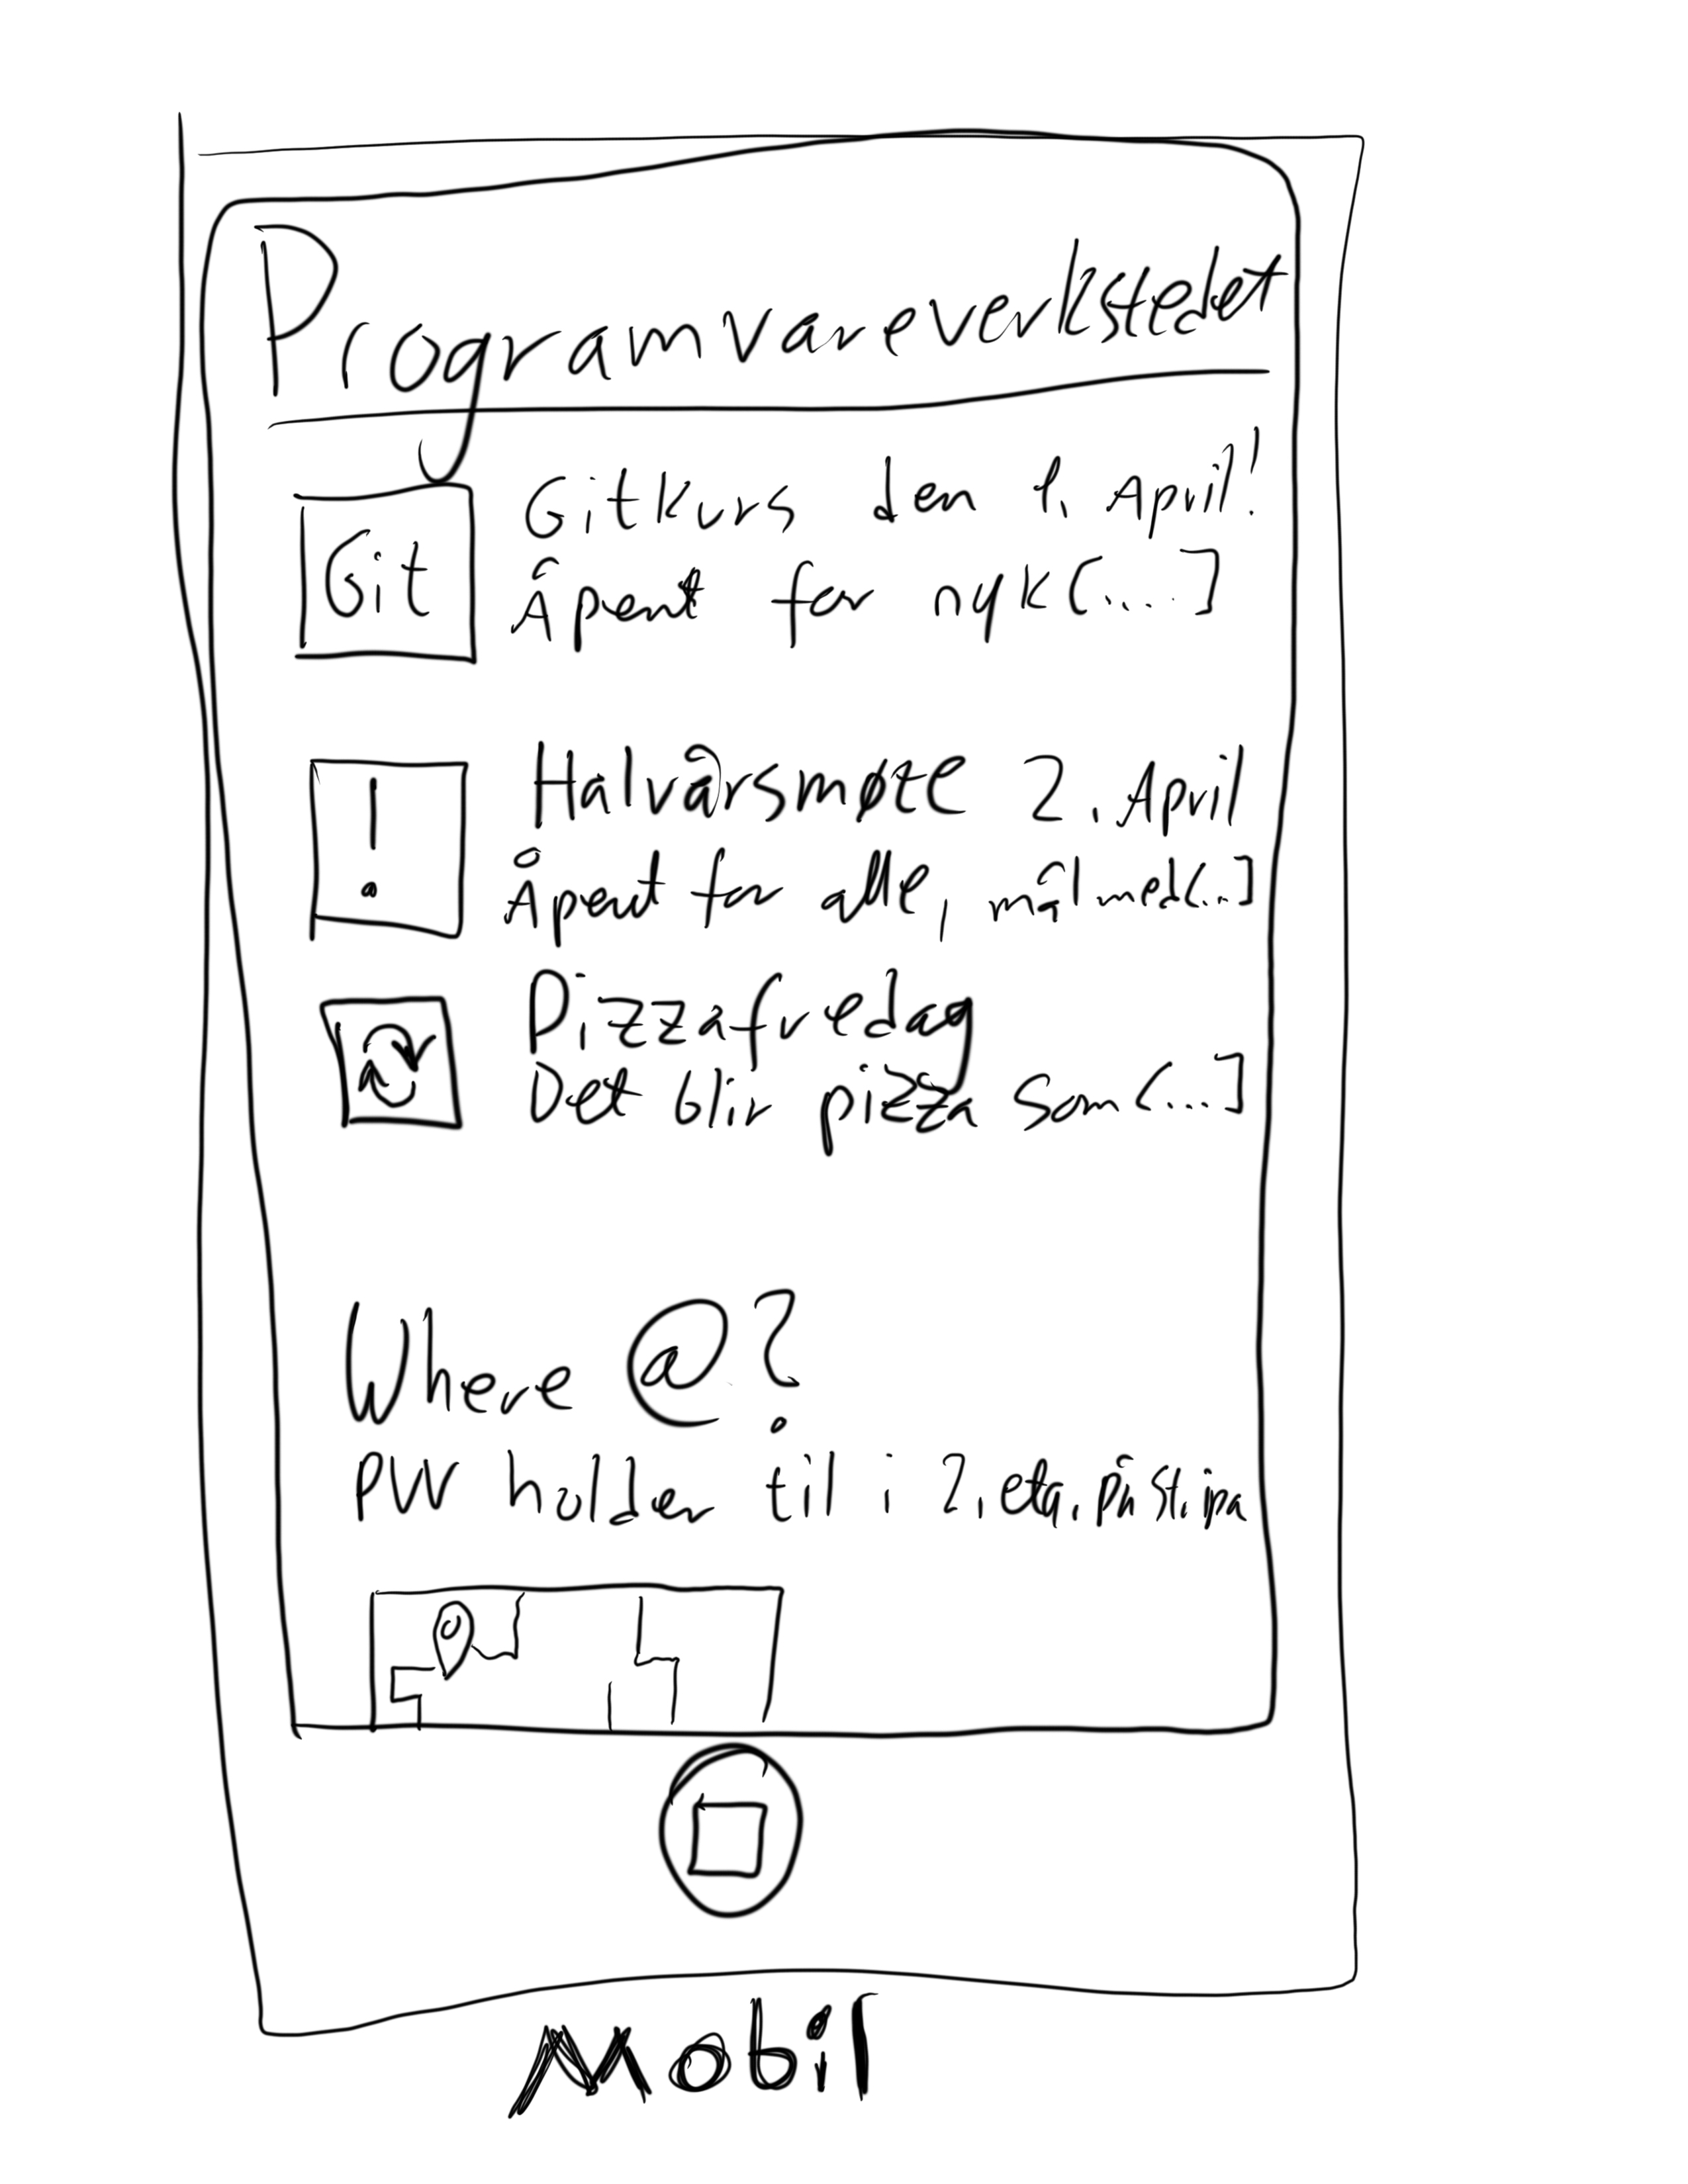 Programvareverkstedet
Git
Gitkurs den 1. April!
Åpent for nyk[....]
!
Halvårsmøte 2. April
Åpent for alle, mål med[...]
Pizzafredag
Det blir pizza som [...]
Where @?
PVV holder til i 2. etg. på st.ipa
Mobil